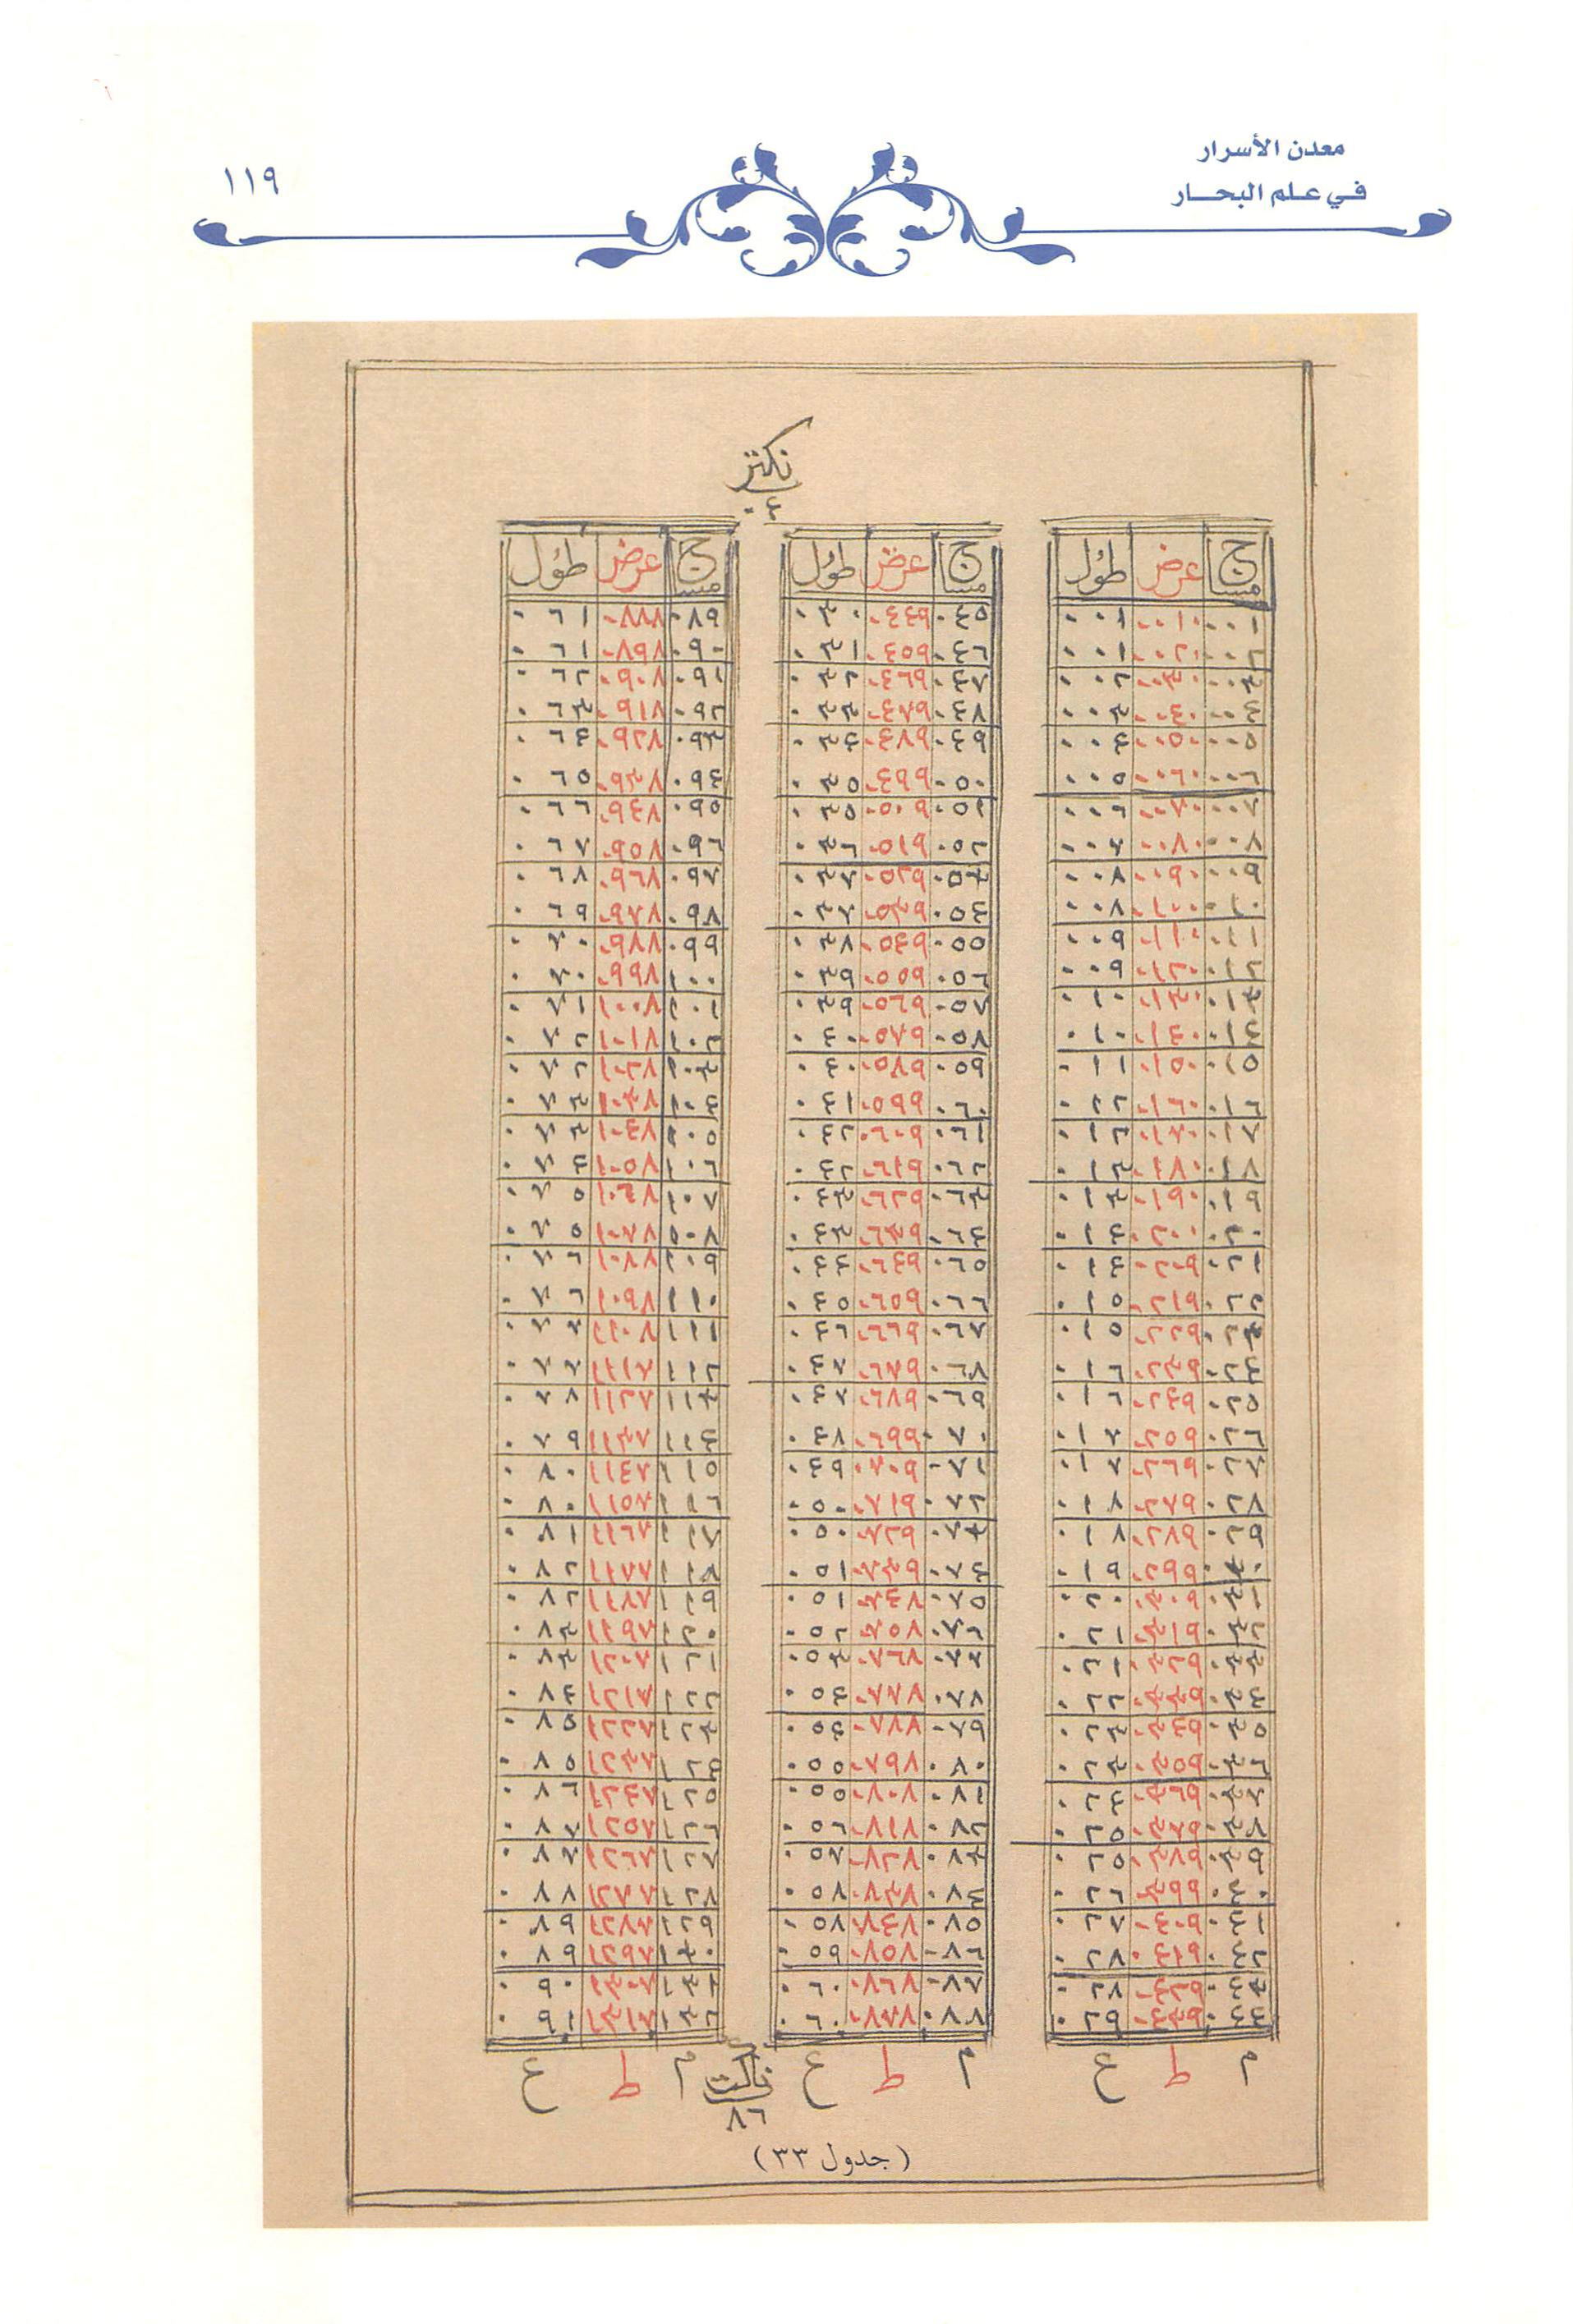 معدن الأسرار
في علم البحار
١١٩
نكتز
٠٤
مسا ج عرض طول
٠٠١ ٠٠١٠ ٠٠١
٠٠٢ ٠٠٢٠ ٠٠١
٠٠٣ ٠٠٣٠ ٠٠٢
٠٠٤ ٠٠٤٠ ٠٠٣
٠٠٥ ٠٠٥٠ ٠٠٤
٠٠٦ ٠٠٦٠ ٠٠٥
٠٠٧ ٠٠٧٠ ٠٠٦
٠٠٨ ٠٠٨٠ ٠٠٧
٠٠٩ ٠٠٩٠ ٠٠٨
٠١٠ ٠١٠٠ ٠٠٨
٠١١ ٠١١٠ ٠٠٩
٠١٢ ٠١٢٠ ٠٠٩
٠١٣ ٠١٣٠ ٠١٠
٠١٤ ٠١٤٠ ٠١٠
٠١٥ ٠١٥٠ ٠١١
٠١٦ ٠١٦٠ ٠١٢
٠١٧ ٠١٧٠ ٠١٢
٠١٨ ٠١٨٠ ٠١٣
٠١٩ ٠١٩٠ ٠١٣
٠٢٠ ٠٢٠٠ ٠١٤
٠٢١ ٠٢٠٩ ٠١٤
٠٢٢ ٠٢١٩ ٠١٥
٠٢٣ ٠٢٢٩ ٠١٥
٠٢٤ ٠٢٣٩ ٠١٦
٠٢٥ ٠٢٤٩ ٠١٦
٠٢٦ ٠٢٥٩ ٠١٧
٠٢٧ ٠٢٦٩ ٠١٧
٠٢٨ ٠٢٧٩ ٠١٨
٠٢٩ ٠٢٨٩ ٠١٨
٠٣٠ ٠٢٩٩ ٠١٩
٠٣١ ٠٣٠٩ ٠٢٠
٠٣٢ ٠٣١٩ ٠٢١
٠٣٣ ٠٣٢٩ ٠٢١
٠٣٤ ٠٣٣٩ ٠٢٢
٠٣٥ ٠٣٤٩ ٠٢٣
٠٣٦ ٠٣٥٩ ٠٢٣
٠٣٧ ٠٣٦٩ ٠٢٤
٠٣٨ ٠٣٧٩ ٠٢٥
٠٣٩ ٠٣٨٩ ٠٢٥
٠٤٠ ٠٣٩٩ ٠٢٦
٠٤١ ٠٤٠٩ ٠٢٧
٠٤٢ ٠٤١٩ ٠٢٧
٠٤٣ ٠٤٢٩ ٠٢٨
٠٤٤ ٠٤٣٩ ٠٢٩
م ط ع
مسا ج عرض طول
٠٤٥ ٠٤٤٩ ٠٣٠
٠٤٦ ٠٤٥٩ ٠٣١
٠٤٧ ٠٤٦٩ ٠٣٢
٠٤٨ ٠٤٧٩ ٠٣٣
٠٤٩ ٠٤٨٩ ٠٣٤
٠٥٠ ٠٤٩٩ ٠٣٥
٠٥١ ٠٥٠٩ ٠٣٥
٠٥٢ ٠٥١٩ ٠٣٦
٠٥٣ ٠٥٢٩ ٠٣٧
٠٥٤ ٠٥٣٩ ٠٣٧
٠٥٥ ٠٥٤٩ ٠٣٨
٠٥٦ ٠٥٥٩ ٠٣٩
٠٥٧ ٠٥٦٩ ٠٣٩
٠٥٨ ٠٥٧٩ ٠٤٠
٠٥٩ ٠٥٨٩ ٠٤٠
٠٦٠ ٠٥٩٩ ٠٤١
٠٦١ ٠٦٠٩ ٠٤٢
٠٦٢ ٠٦١٩ ٠٤٢
٠٦٣ ٠٦٢٩ ٠٤٣
٠٦٤ ٠٦٣٩ ٠٤٣
٠٦٥ ٠٦٤٩ ٠٤٤
٠٦٦ ٠٦٥٩ ٠٤٥
٠٦٧ ٠٦٦٩ ٠٤٦
٠٦٨ ٠٦٧٩ ٠٤٧
٠٦٩ ٠٦٨٩ ٠٤٧
٠٧٠ ٠٦٩٩ ٠٤٨
٠٧١ ٠٧٠٩ ٠٤٩
٠٧٢ ٠٧١٩ ٠٥٠
٠٧٣ ٠٧٢٩ ٠٥٠
٠٧٤ ٠٧٣٩ ٠٥١
٠٧٥ ٠٧٤٨ ٠٥١
٠٧٦ ٠٧٥٨ ٠٥٢
٠٧٧ ٠٧٦٨ ٠٥٣
٠٧٨ ٠٧٧٨ ٠٥٤
٠٧٩ ٠٧٨٨ ٠٥٤
٠٨٠ ٠٧٩٨ ٠٥٥
٠٨١ ٠٨٠٨ ٠٥٥
٠٨٢ ٠٨١٨ ٠٥٦
٠٨٣ ٠٨٢٨ ٠٥٧
٠٨٤ ٠٨٣٨ ٠٥٨
٠٨٥ ٠٨٤٨ ٠٥٨
٠٨٦ ٠٨٥٨ ٠٥٩
٠٨٧ ٠٨٦٨ ٠٦٠
٠٨٨ ٠٨٧٨ ٠٦٠
م ط ع
مسا ج عرض طول
٠٨٩ ٠٨٨٨ ٠٦١
٠٩٠ ٠٨٩٨ ٠٦١
٠٩١ ٠٩٠٨ ٠٦٢
٠٩٢ ٠٩١٨ ٠٦٣
٠٩٣ ٠٩٢٨ ٠٦٤
٠٩٤ ٠٩٣٨ ٠٦٥
٠٩٥ ٠٩٤٨ ٠٦٦
٠٩٦ ٠٩٥٨ ٠٦٧
٠٩٧ ٠٩٦٨ ٠٦٨
٠٩٨ ٠٩٧٨ ٠٦٩
٠٩٩ ٠٩٨٨ ٠٧٠
١٠٠ ٠٩٩٨ ٠٧٠
١٠١ ١٠٠٨ ٠٧١
١٠٢ ١٠١٨ ٠٧٢
١٠٣ ١٠٢٨ ٠٧٢
١٠٤ ١٠٣٨ ٠٧٣
١٠٥ ١٠٤٨ ٠٧٣
١٠٦ ١٠٥٨ ٠٧٤
١٠٧ ١٠٦٨ ٠٧٥
١٠٨ ١٠٧٨ ٠٧٥
١٠٩ ١٠٨٨ ٠٧٦
١١٠ ١٠٩٨ ٠٧٦
١١١ ١١٠٨ ٠٧٧
١١٢ ١١١٧ ٠٧٧
١١٣ ١١٢٧ ٠٧٨
١١٤ ١١٣٧ ٠٧٩
١١٥ ١١٤٧ ٠٨٠
١١٦ ١١٥٧ ٠٨٠
١١٧ ١١٦٧ ٠٨١
١١٨ ١١٧٧ ٠٨٢
١١٩ ١١٨٧ ٠٨٢
١٢٠ ١١٩٧ ٠٨٣
١٢١ ١٢٠٧ ٠٨٣
١٢٢ ١٢١٧ ٠٨٤
١٢٣ ١٢٢٧ ٠٨٥
١٢٤ ١٢٣٧ ٠٨٥
١٢٥ ١٢٤٧ ٠٨٦
١٢٦ ١٢٥٧ ٠٨٧
١٢٧ ١٢٦٧ ٠٨٧
١٢٨ ١٢٧٧ ٠٨٨
١٢٩ ١٢٨٧ ٠٨٩
١٣٠ ١٢٩٧ ٠٨٩
١٣١ ١٣٠٧ ٠٩٠
١٣٢ ١٣١٧ ٠٩١
م ط ع
٨٦
(جدول ٣٣)